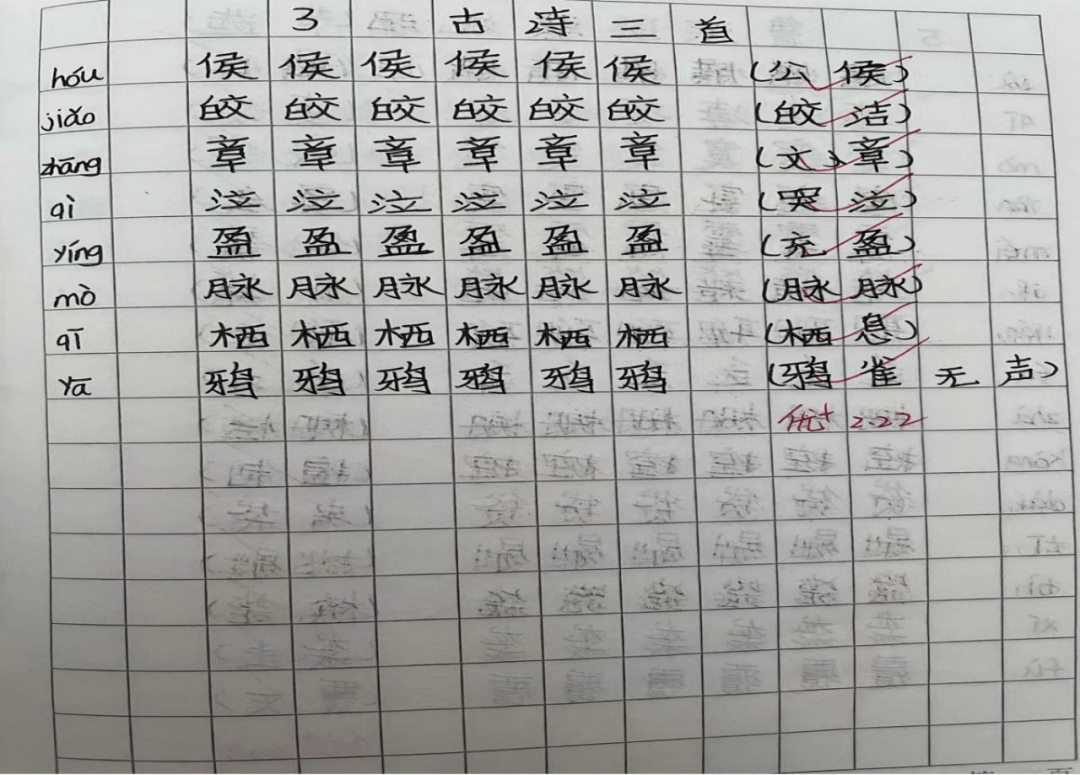 3 古诗三首
hóu 侯 侯 侯 侯 侯 侯 (公侯)
jiǎo 皎 皎 皎 皎 皎 皎 (皎洁)
zhāng 章 章 章 章 章 章 (文章)
qì 泣 泣 泣 泣 泣 泣 (哭泣)
yíng 盈 盈 盈 盈 盈 盈 (充盈)
mò 脉 脉 脉 脉 脉 脉 (脉脉)
qī 栖 栖 栖 栖 栖 栖 (栖息)
yā 鸦 鸦 鸦 鸦 鸦 鸦 (鸦雀无声)
优+ 2.22